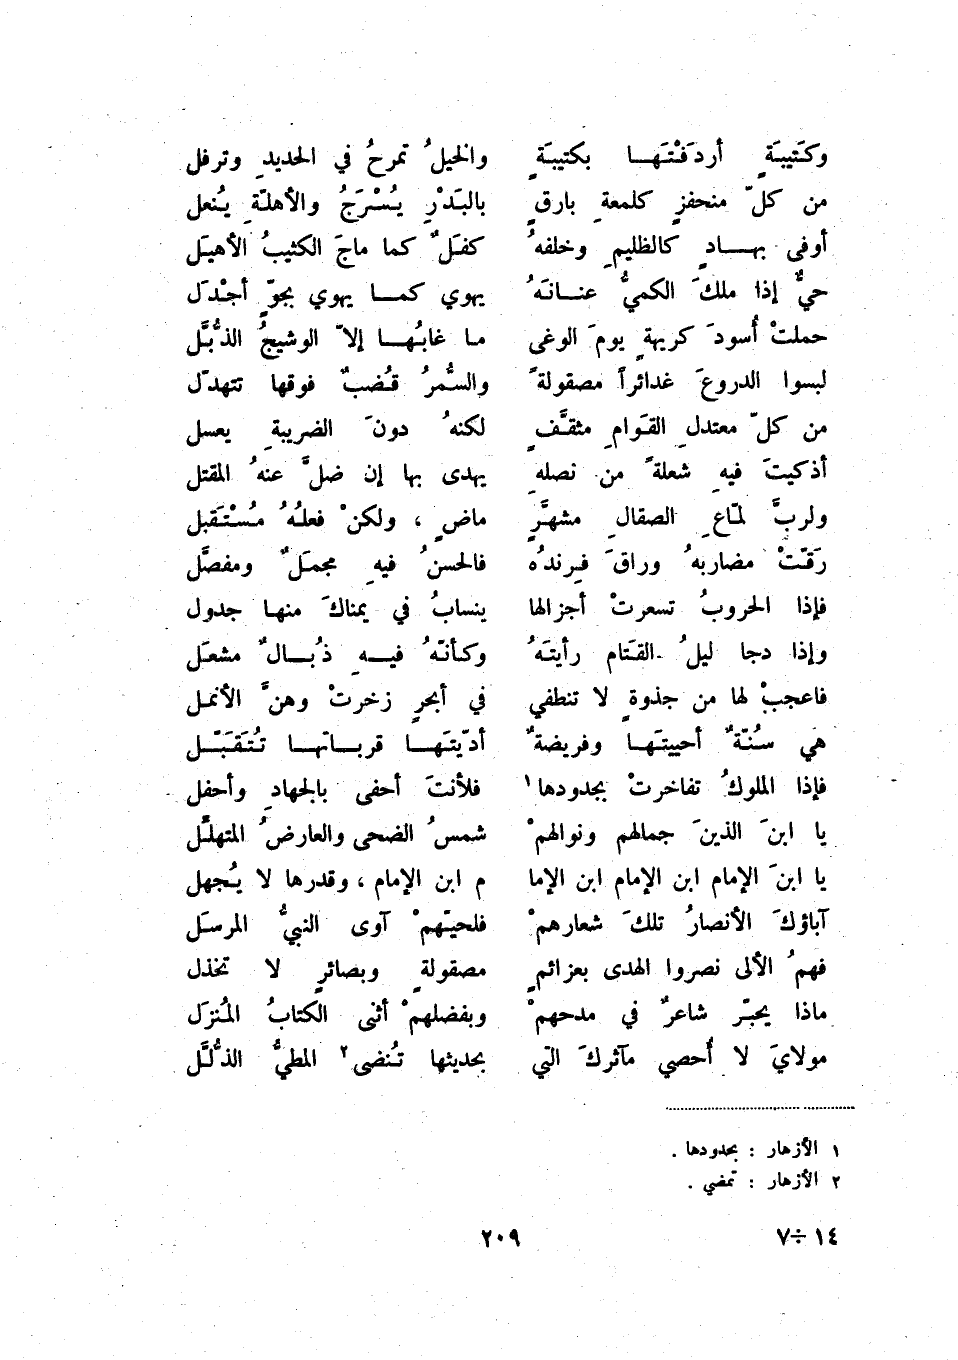 وكَتيبَةٍ أردَفْتَهَـا بكتيبَةٍ والخيلُ تمرحُ في الحديدِ وترفل
من كلّ منحفزٍ كلمعةِ بارقٍ بالبَدْرِ يُسْرَجُ والأهلّةِ يُنعل
أوفى بهـادٍ كالظليمِ وخلفهُ كفَلٌ كما ماجَ الكثيبُ الأهيَل
حيٌّ إذا ملكَ الكميُّ عنـانَهُ يهوي كمـا يهوي بجوّ أجْدَل
حملتْ أُسودَ كريهةٍ يومَ الوغى ما غابُهـا إلاّ الوشيجُ الذُّبَّل
لبسوا الدروعَ غدائراً مصقولةً والسُّمرُ قُضبٌ فوقها تتهدّل
من كلّ معتدلِ القَوامِ مثقَّفٍ لكنهُ دونَ الضريبةِ يعسل
أذكيتَ فيهِ شعلةً من نصلهِ يهدى بها إن ضلَّ عنهُ المقتل
ولربَّ لمّاعِ الصقالِ مشهَّرٍ ماضٍ ، ولكنْ فعلُهُ مُسْتَقبل
رَقّتْ مضاربهُ وراقَ فِرندُه فالحسنُ فيهِ مجمَلٌ ومفصَّل
فإذا الحروبُ تسعرتْ أجزالها ينسابُ في يمناكَ منها جدول
وإذا دجا ليلُ القَتام رأيتَهُ وكأنّهُ فيـهِ ذُبـالٌ مشعَل
فاعجبْ لها من جذوةٍ لا تنطفي في أبحرٍ زخرتْ وهنَّ الأنمل
هي سُنّةٌ أحييتَهـا وفريضةٌ أدّيتَهـا قرباتُهـا تُتَقَبّـل
فإذا الملوكُ تفاخرتْ بجدودها١ فلأنتَ أحفى بالجهادِ وأحفل
يا ابنَ الذينَ جمالهم ونوالهمْ شمسُ الضحى والعارضُ المتهلّل
يا ابنَ الإمام ابن الإمام ابن الإما م ابن الإمام ، وقدرها لا يُجهل
آباؤكَ الأنصارُ تلكَ شعارهمْ فلحيّهمْ آوى النبيُّ المرسَل
فهمُ الألى نصروا الهدى بعزائمٍ مصقولةٍ وبصائرٍ لا تخذل
ماذا يحبّر شاعرٌ في مدحهمْ وبفضلهمْ أثنى الكتابُ المُنزَل
مولايَ لا أُحصي مآثركَ التي بحديثها تُنضى٢ المطيُّ الذُّلَّل
١ الأزهار : بحدودها .
٢ الأزهار : تمضي .
١٤ ÷ ٧
٢٠٩